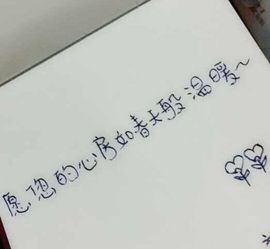 愿您的心房如春天般温暖~